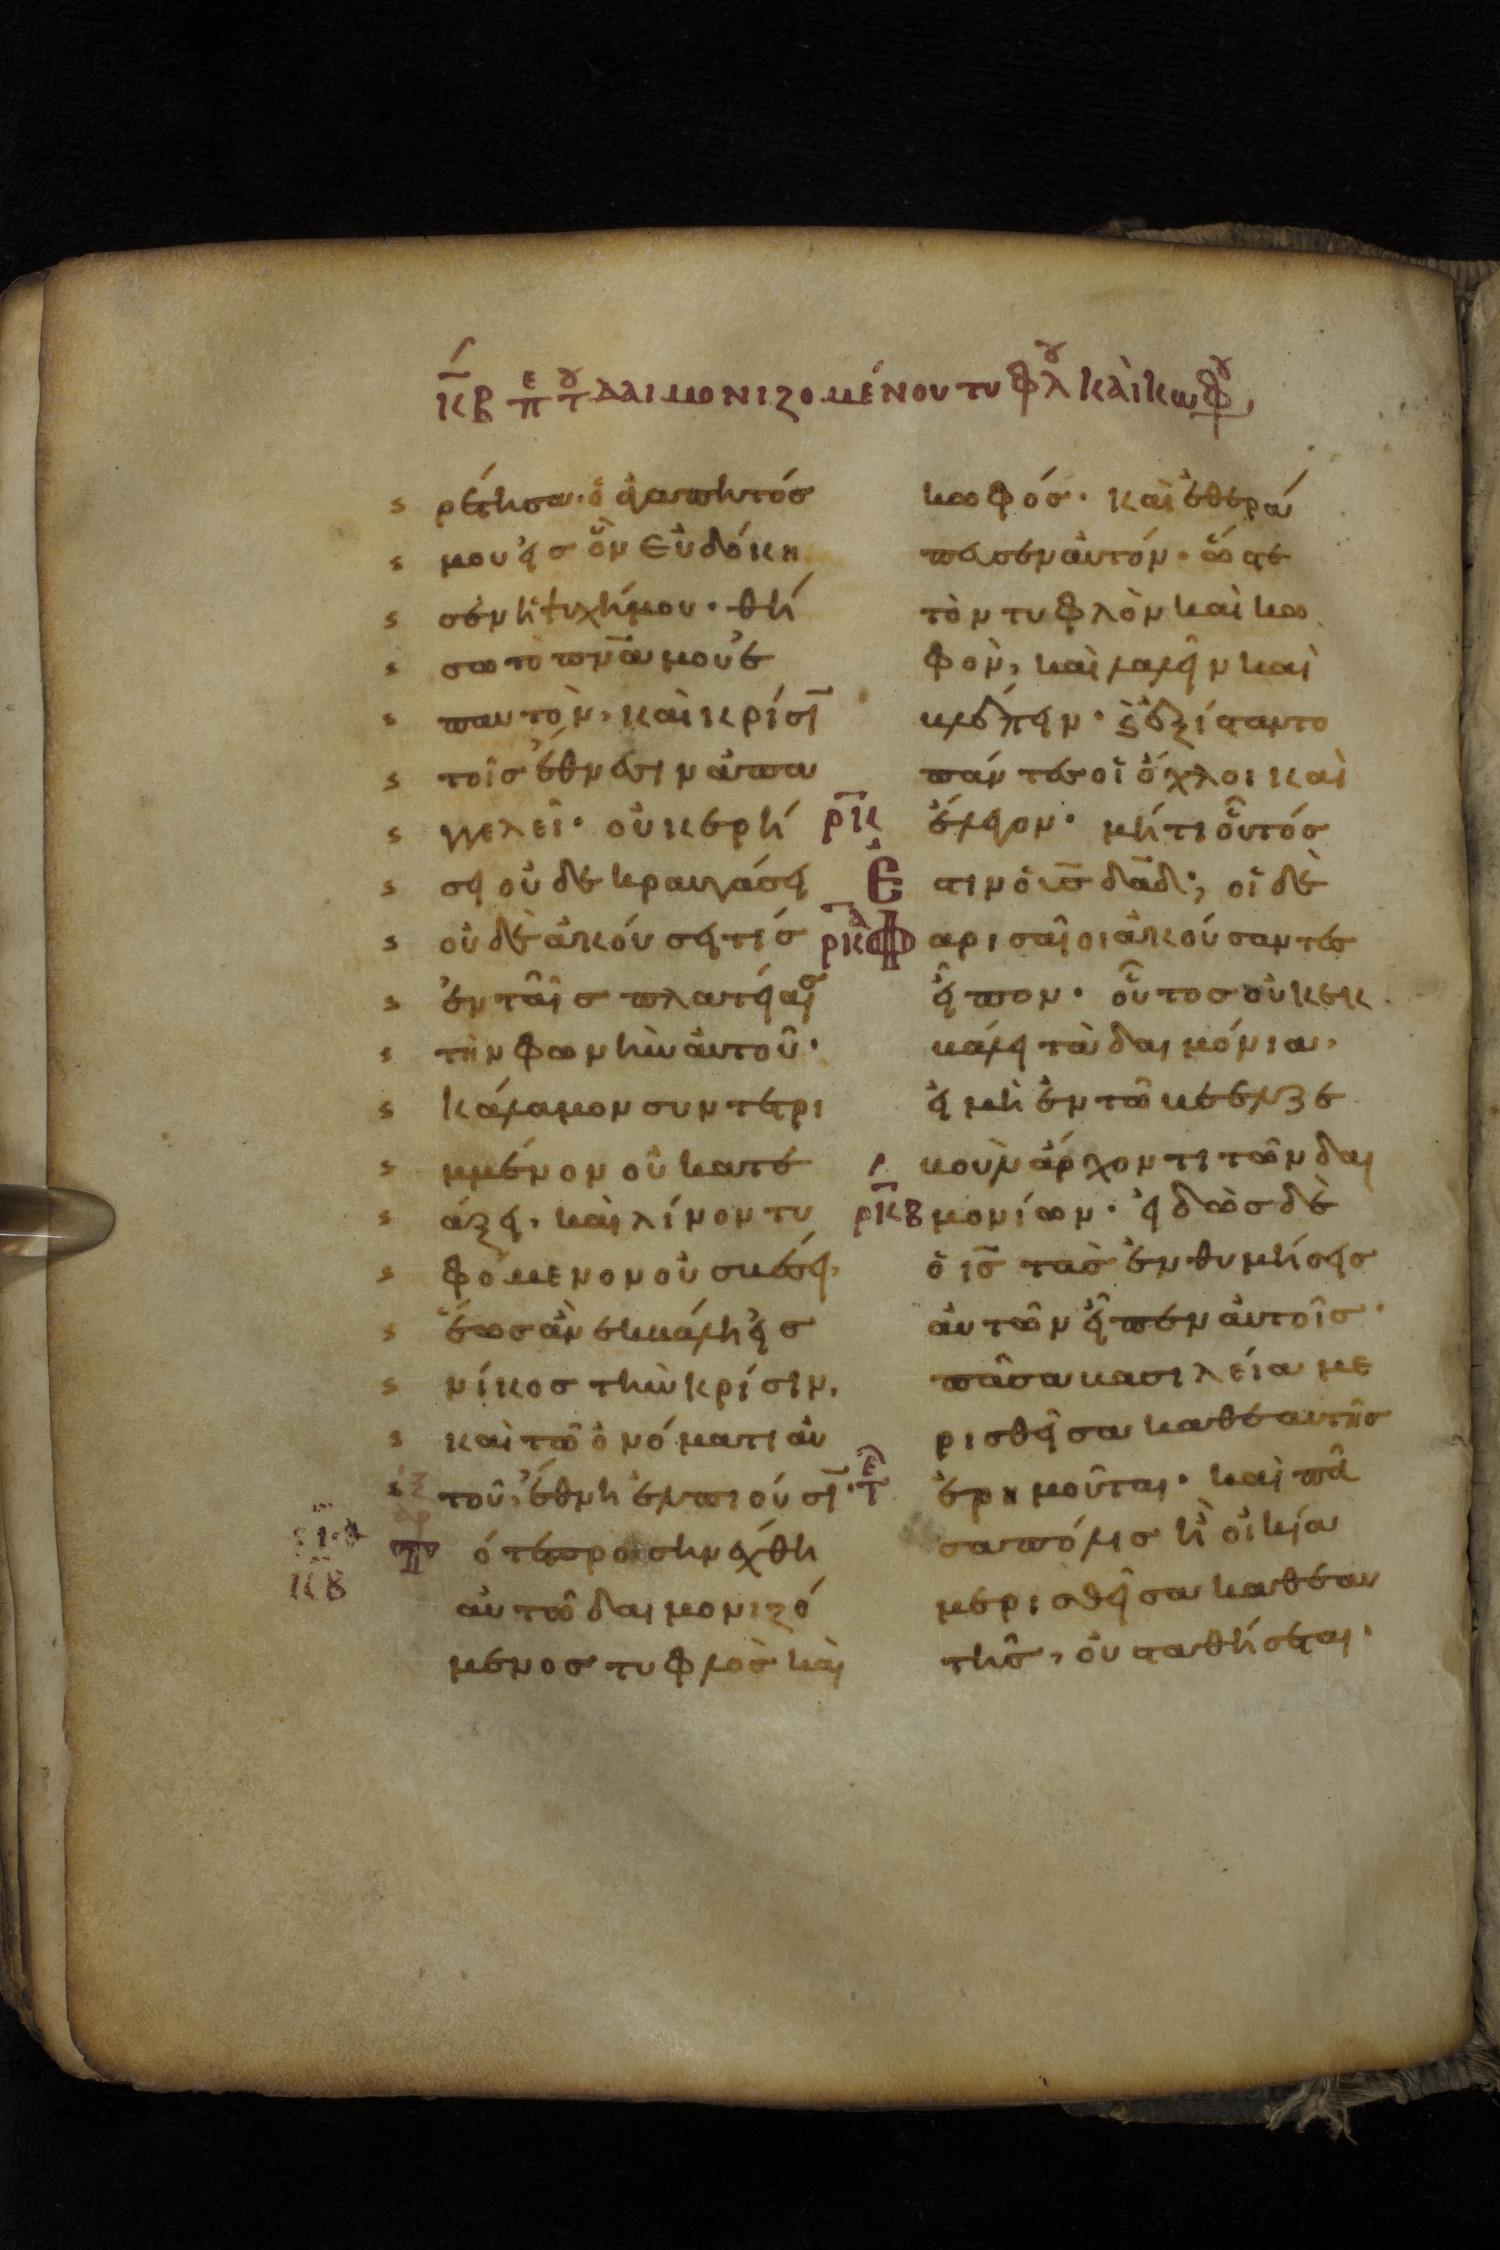 κβ πε του δαιμονιζομένου τυφλου καὶ κωφου
ρέτησα· ὁ ἀγαπητός
μου εἰσ ὃν εὐδόκη
σεν ἡ ψυχή μου· θή
σω τὸ πν̅α μου ἐ
π αυτὸν, καὶ κρίσι̅
τοῖσ ἔθνεσιν ἀπα
γγελεῖ· οὐκ ερή
σει οὐδὲ κραυγάσει
οὐδὲ ἀκούσει τίσ
ἐν ταῖσ πλατείαισ
τὴν φωνὴν ἀυτοῦ·
κάλαμον συντετρι
μμένον οὐ κατε
άξει, καὶ λίνον τυ
φόμενον οὐ σβέσει,
ἕωσ ἂν ἐκβάλη εἰσ
νίκοσ τὴν κρίσιν,
καὶ τῶ ὀνόματι αὐ
τοῦ, ἔθνη ἐλπιοῦσι̅·
Τότε προσηνέχθη
αὐτῶ δαιμονιζό
μενοσ τυφλὸσ καὶ
κωφόσ· καὶ ἐθερά
πευσεν ἀυτόν· ὥστε
τὸν τυφλὸν καὶ κω
φὸν, καὶ λαλεῖν καὶ
βλέπειν· ἐξίσταντο
πάντεσ οἱ ὄχλοι καὶ
ρκ ἔλεγον· μήτι οὗτόσ
Εστιν ὁ υι̅σ δα̅δ; οἱ δὲ
ρκα Φαρισαῖοι ἀκούσαντεσ
εἶπον· οὗτοσ οὐκ εκ
βάλει τὰ δαιμόνια,
εἰ μὴ ἐν τῶ βεελζε
βοὺλ ἄρχοντι τῶν δαι
ρκβ μονίων· εἰδὼσ δὲ
ὁ ι̅σ τασ ἐνθυμήσεισ
ἀυτῶν εἶπεν ἀυτοῖσ·
πᾶσα βασιλεία με
ρισθεῖσα καθ εαυτῆσ
ἐρημοῦται· καὶ πᾶ
σα πόλισ ἢ οἰκία
μερισθεῖσα καθ εαυ
τῆσ, οὐ σταθήσεται·